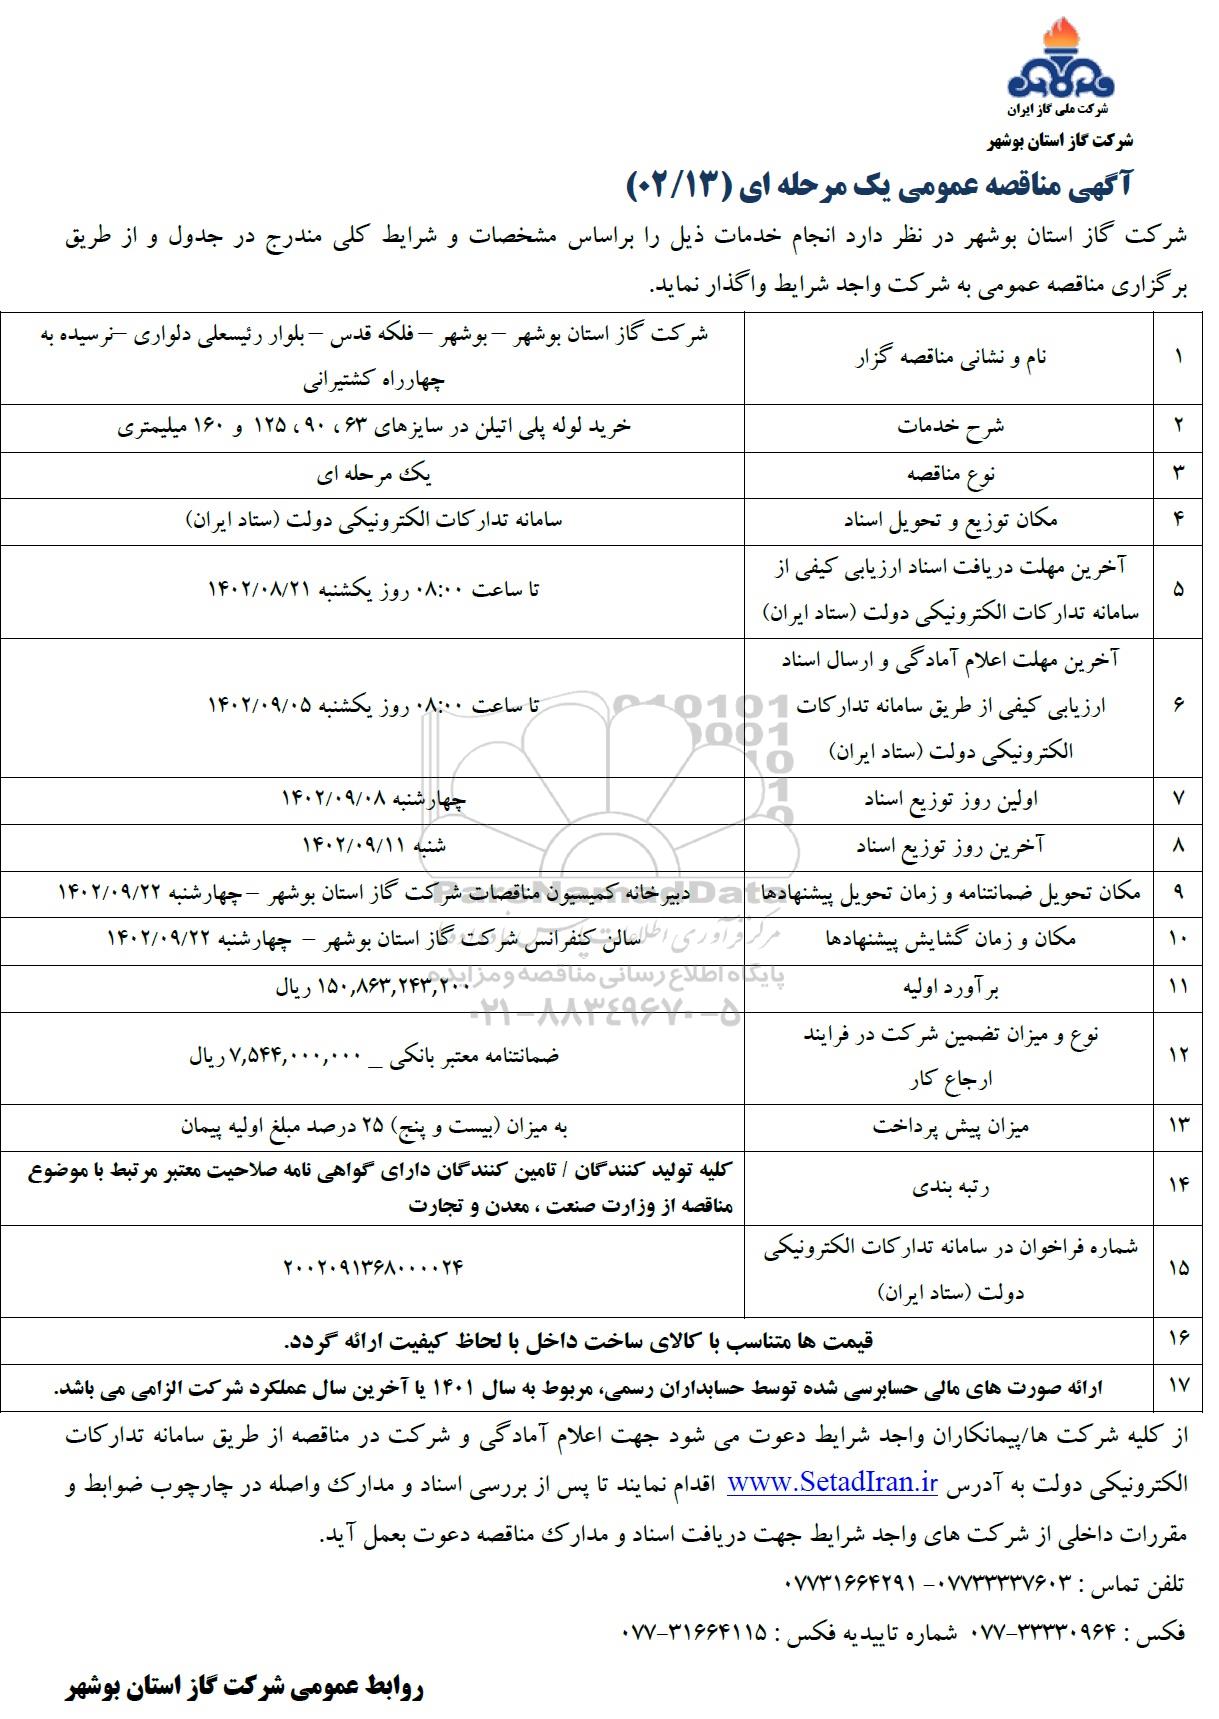 شرکت ملی گاز ایران
شرکت گاز استان بوشهر
آگهی مناقصه عمومی یک مرحله ای (۰۲/۱۳)
شرکت گاز استان بوشهر در نظر دارد انجام خدمات ذیل را براساس مشخصات و شرایط کلی مندرج در جدول و از طریق
برگزاری مناقصه عمومی به شرکت واجد شرایط واگذار نماید.
۱ نام و نشانی مناقصه گزار شرکت گاز استان بوشهر – بوشهر – فلکه قدس – بلوار رئیسعلی دلواری –نرسیده به
چهارراه کشتیرانی
۲ شرح خدمات خرید لوله پلی اتیلن در سایزهای ۶۳ ، ۹۰ ، ۱۲۵ و ۱۶۰ میلیمتری
۳ نوع مناقصه یک مرحله ای
۴ مکان توزیع و تحویل اسناد سامانه تدارکات الکترونیکی دولت (ستاد ایران)
۵ آخرین مهلت دریافت اسناد ارزیابی کیفی از
سامانه تدارکات الکترونیکی دولت (ستاد ایران)
تا ساعت ۰۸:۰۰ روز یکشنبه ۱۴۰۲/۰۸/۲۱
۶ آخرین مهلت اعلام آمادگی و ارسال اسناد
ارزیابی کیفی از طریق سامانه تدارکات
الکترونیکی دولت (ستاد ایران)
تا ساعت ۰۸:۰۰ روز یکشنبه ۱۴۰۲/۰۹/۰۵
۷ اولین روز توزیع اسناد چهارشنبه ۱۴۰۲/۰۹/۰۸
۸ آخرین روز توزیع اسناد شنبه ۱۴۰۲/۰۹/۱۱
۹ مکان تحویل ضمانتنامه و زمان تحویل پیشنهادها دبیرخانه کمیسیون مناقصات شرکت گاز استان بوشهر –چهارشنبه ۱۴۰۲/۰۹/۲۲
۱۰ مکان و زمان گشایش پیشنهادها سالن کنفرانس شرکت گاز استان بوشهر – چهارشنبه ۱۴۰۲/۰۹/۲۲
۱۱ برآورد اولیه ۱۵۰,۸۶۳,۲۴۳,۲۰۰ ریال
۱۲ نوع و میزان تضمین شرکت در فرایند
ارجاع کار
ضمانتنامه معتبر بانکی _ ۷,۵۴۴,۰۰۰,۰۰۰ ریال
۱۳ میزان پیش پرداخت به میزان (بیست و پنج) ۲۵ درصد مبلغ اولیه پیمان
۱۴ رتبه بندی کلیه تولید کنندگان / تامین کنندگان دارای گواهی نامه صلاحیت معتبر مرتبط با موضوع
مناقصه از وزارت صنعت ، معدن و تجارت
۱۵ شماره فراخوان در سامانه تدارکات الکترونیکی
دولت (ستاد ایران)
۲۰۰۲۰۹۱۳۶۸۰۰۰۰۲۴
۱۶ قیمت ها متناسب با کالای ساخت داخل با لحاظ کیفیت ارائه گردد.
۱۷ ارائه صورت های مالی حسابرسی شده توسط حسابداران رسمی، مربوط به سال ۱۴۰۱ یا آخرین سال عملکرد شرکت الزامی می باشد.
ParsNamadData
پایگاه اطلاع رسانی مناقصه و مزایده
۰۲۱-۸۸۳۴۹۶۷۰-۵
از کلیه شرکت ها/پیمانکاران واجد شرایط دعوت می شود جهت اعلام آمادگی و شرکت در مناقصه از طریق سامانه تدارکات
الکترونیکی دولت به آدرس www.SetadIran.ir اقدام نمایند تا پس از بررسی اسناد و مدارک واصله در چارچوب ضوابط و
مقررات داخلی از شرکت های واجد شرایط جهت دریافت اسناد و مدارک مناقصه دعوت بعمل آید.
تلفن تماس : ۰۷۷۳۳۳۳۷۶۰۳- ۰۷۷۳۱۶۶۴۲۹۱
فکس : ۳۳۳۳۰۹۶۴-۰۷۷ شماره تاییدیه فکس : ۳۱۶۶۴۱۱۵-۰۷۷
روابط عمومی شرکت گاز استان بوشهر